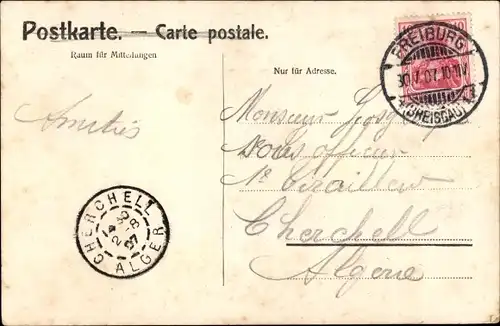 Postkarte. — Carte postale.
Raum für Mitteilungen
Nur für Adresse.
FREIBURG
30.7.07.10-11V
(BREISGAU)
Amitiés
Monsieur
sous officier
1e tirailleur
Cherchell
Algérie
CHERCHELL
ALGER